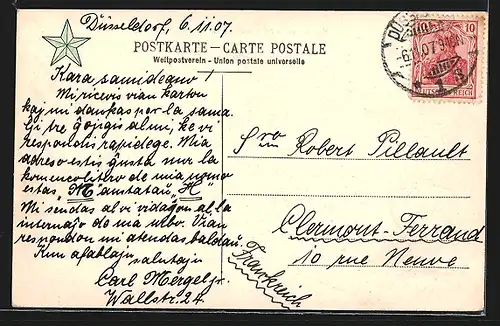 Düsseldorf, 6.11.07.
POSTKARTE – CARTE POSTALE
Weltpostverein - Union postale universelle
Kara samideano!
Mi ricevis vian karton
kaj mi dankas por la sama.
Ĝi tre ĝojigis al mi, ke vi
respondis rapidege. Mia
adreso estis ĝusta nur la
komenclitero de mia nomo
estas "M" anstataŭ "H"
Mi sendas al vi vidaĵon al la
internaĵo de ma urbo. Vian
respondon mi atendas baldaŭ.
Kun afablaj
salutaj
Carl Mergel jr.
Wallstr. 24
Sro Robert Pillault
Clermont-Ferrand
10 rue Neuve
Frankreich
10
DEUTSCHES REICH